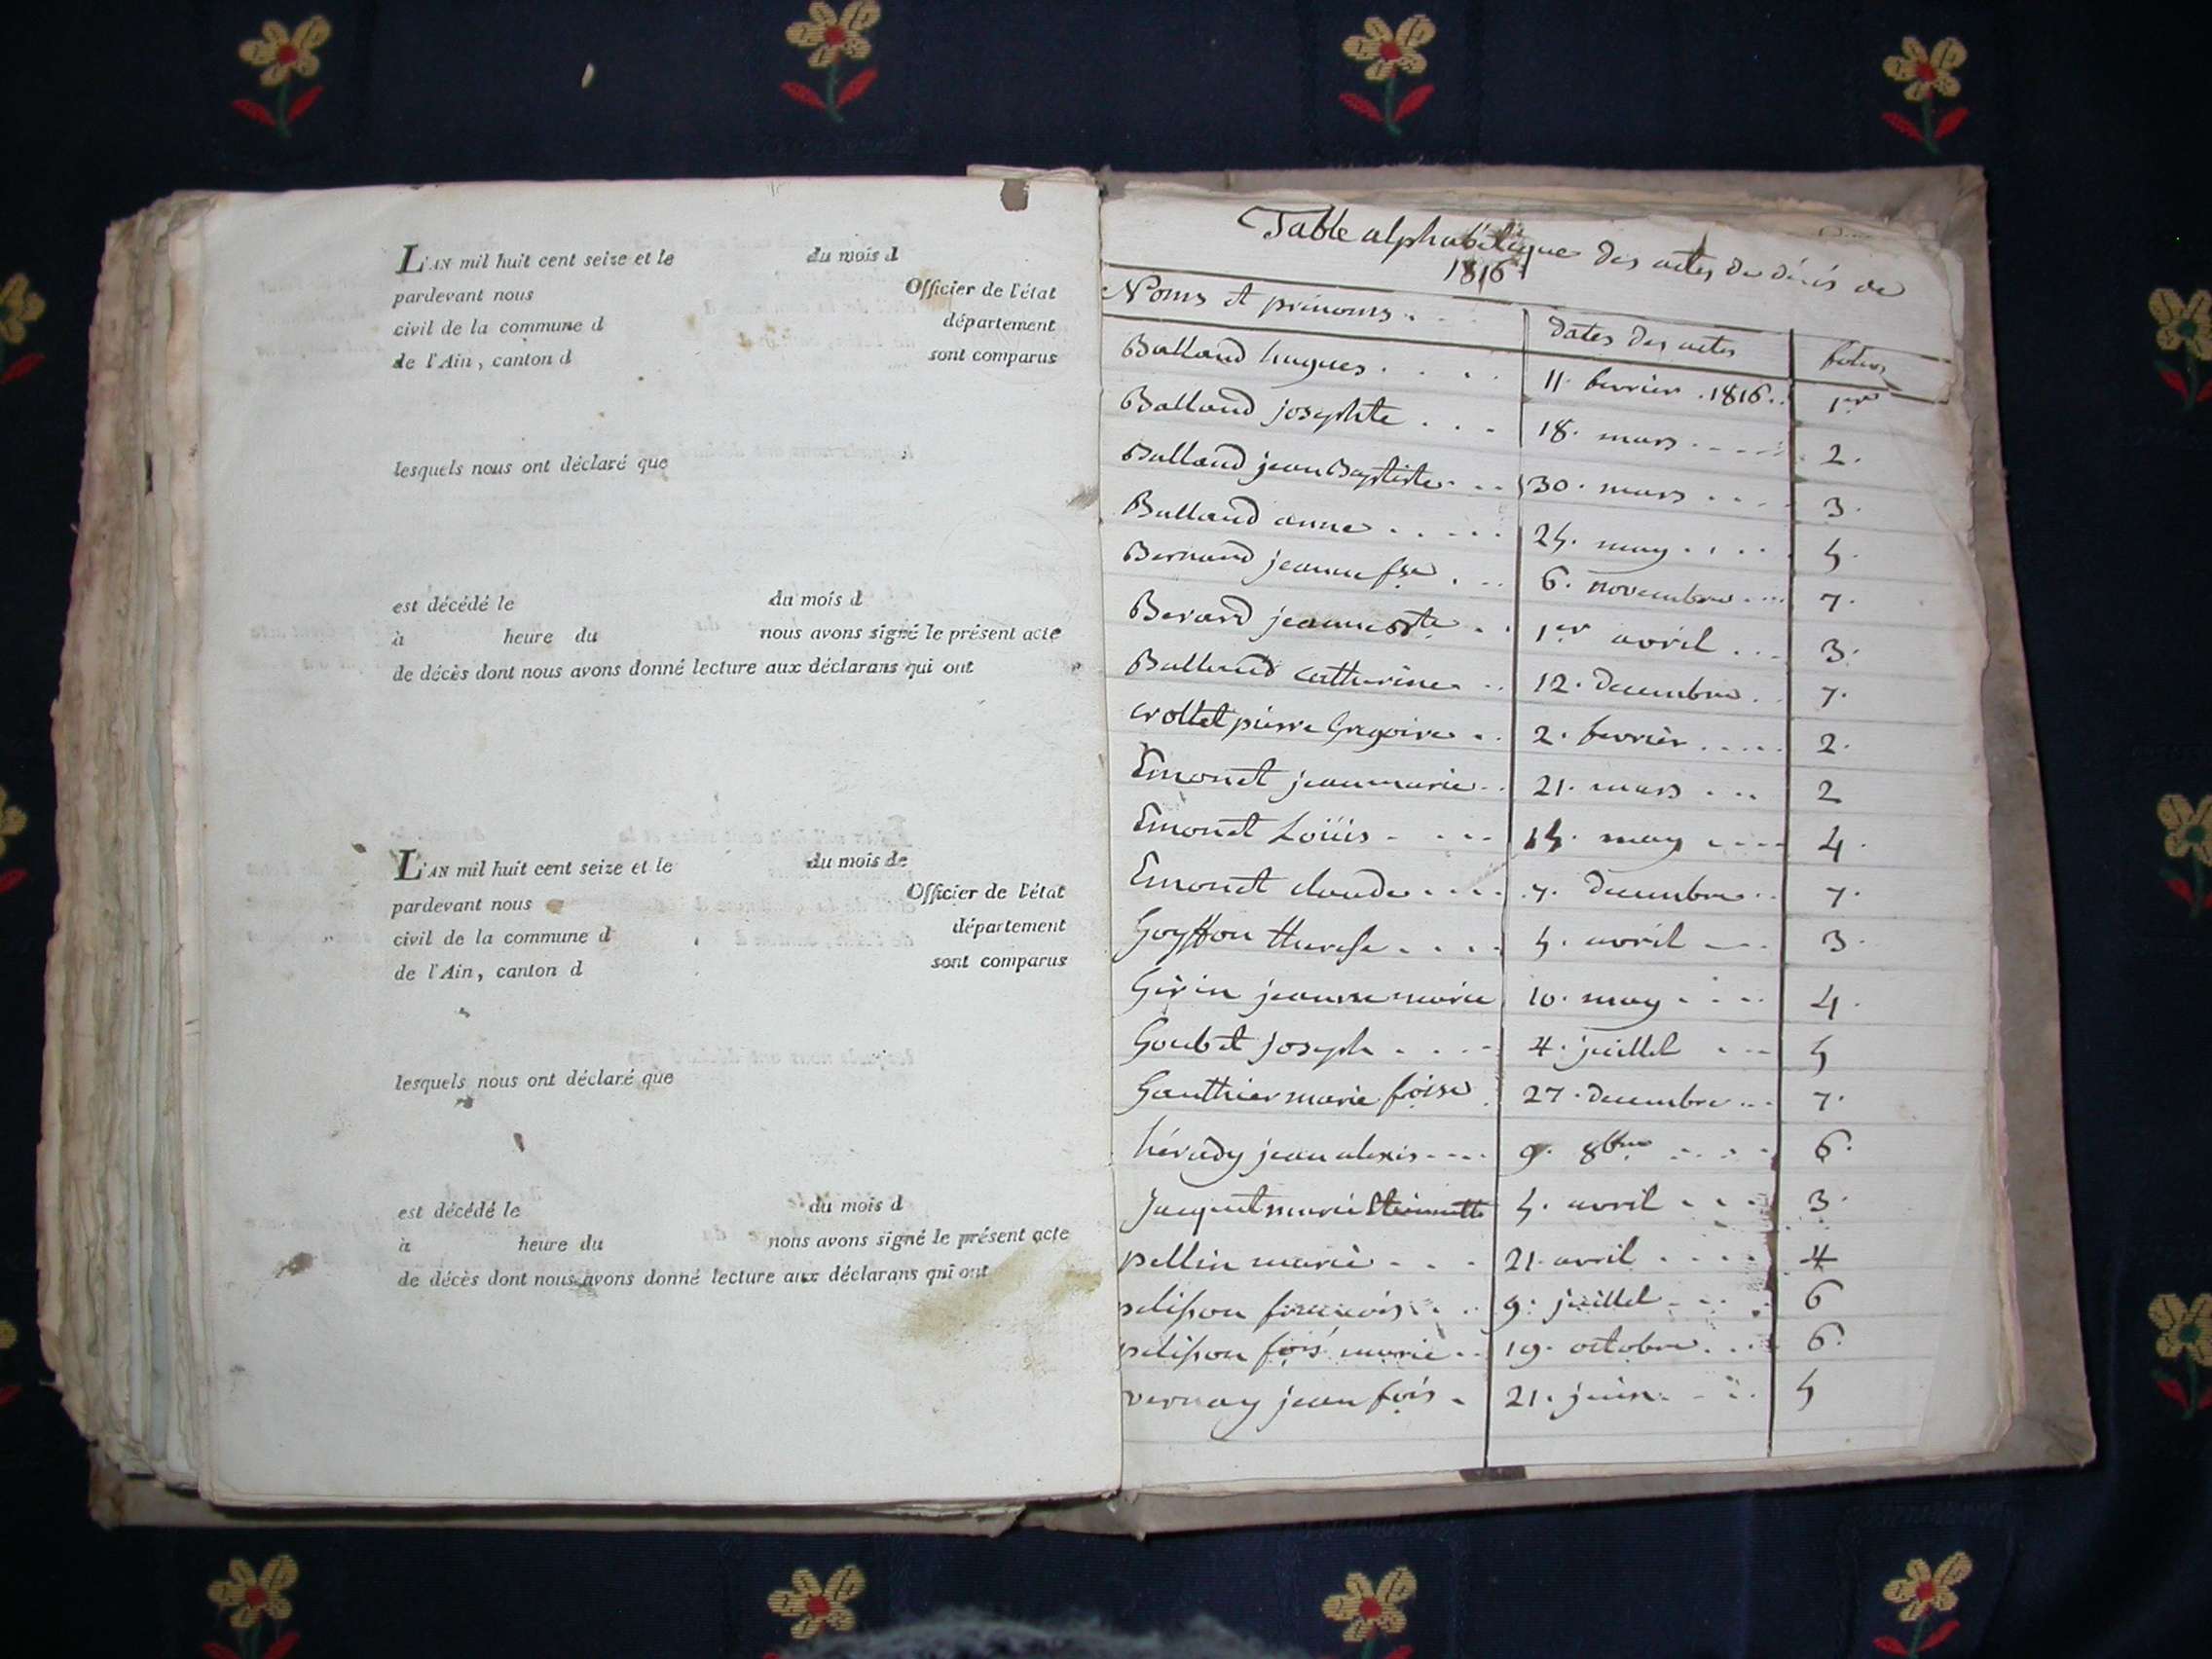 L'AN mil huit cent seize et le du mois d
pardevant nous Officier de l'état
civil de la commune d département
de l'Ain, canton d sont comparus
lesquels nous ont déclaré que
est décédé le du mois d
à heure du nous avons signé le présent acte
de décès dont nous avons donné lecture aux déclarans qui ont
L'AN mil huit cent seize et le du mois de
pardevant nous Officier de l'état
civil de la commune d département
de l'Ain, canton d sont comparus
lesquels nous ont déclaré que
est décédé le du mois d
à heure du nous avons signé le présent acte
de décès dont nous avons donné lecture aux déclarans qui ont
Table alphabétique des actes de décès de
1816
Noms et prénoms . . . dates des actes folios
Balland hugues . . . . 11. fevrier . 1816 . . 1er
Balland josephte . . . 18. mars . . . . 2.
Balland jean Baptiste . . . 30. mars . . . . 3.
Balland anne . . . . . 24. may . . . . 5.
Bernard jeanne fse . . . 6. novembre . . . 7.
Berard jeanne . . 1er avril . . . 3.
Balland catherine . . 12. decembre . . 7.
Crollet pierre Gregoire . . 2. fevrier . . . . . 2.
Emonet jean marie . . 21. mars . . . 2
Emonet Loüis . . . . 14. may . . . . 4.
Emonet claude . . . . 7. decembre . . 7.
Goyffon therese . . . . 5. avril . . . 3.
Girin jeanne marie 10. may . . . . 4.
Goubet joseph . . . . 4. juillet . . . 5
Gauthier marie foise . 27. decembre . . . 7.
hérady jean alexis . . . . 9. 8bre . . . . 6.
Jacquet marie Etiennette 5. avril . . . 3.
pellin marie . . . 21. avril . . . . 4
pelisson francois . . . 9. juillet . . . . 6
pelisson fois marie . . 19. octobre . . . . 6.
vernay jean fois . 21. juin . . . . 5